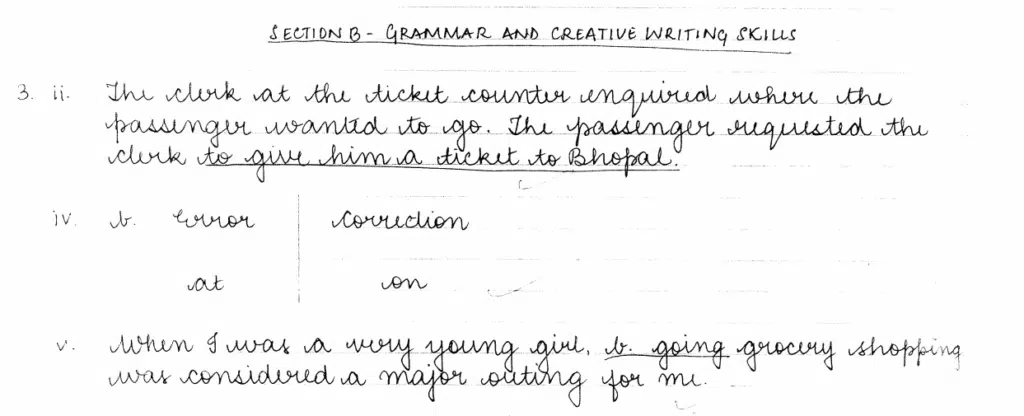 SECTION B - GRAMMAR AND CREATIVE WRITING SKILLS
3. ii. The clerk at the ticket counter enquired where the
passenger wanted to go. The passenger requested the
clerk to give him a ticket to Bhopal.
iv. b. Error | Correction
at | on
v. When I was a very young girl, b. going grocery shopping
was considered a major outing for me.